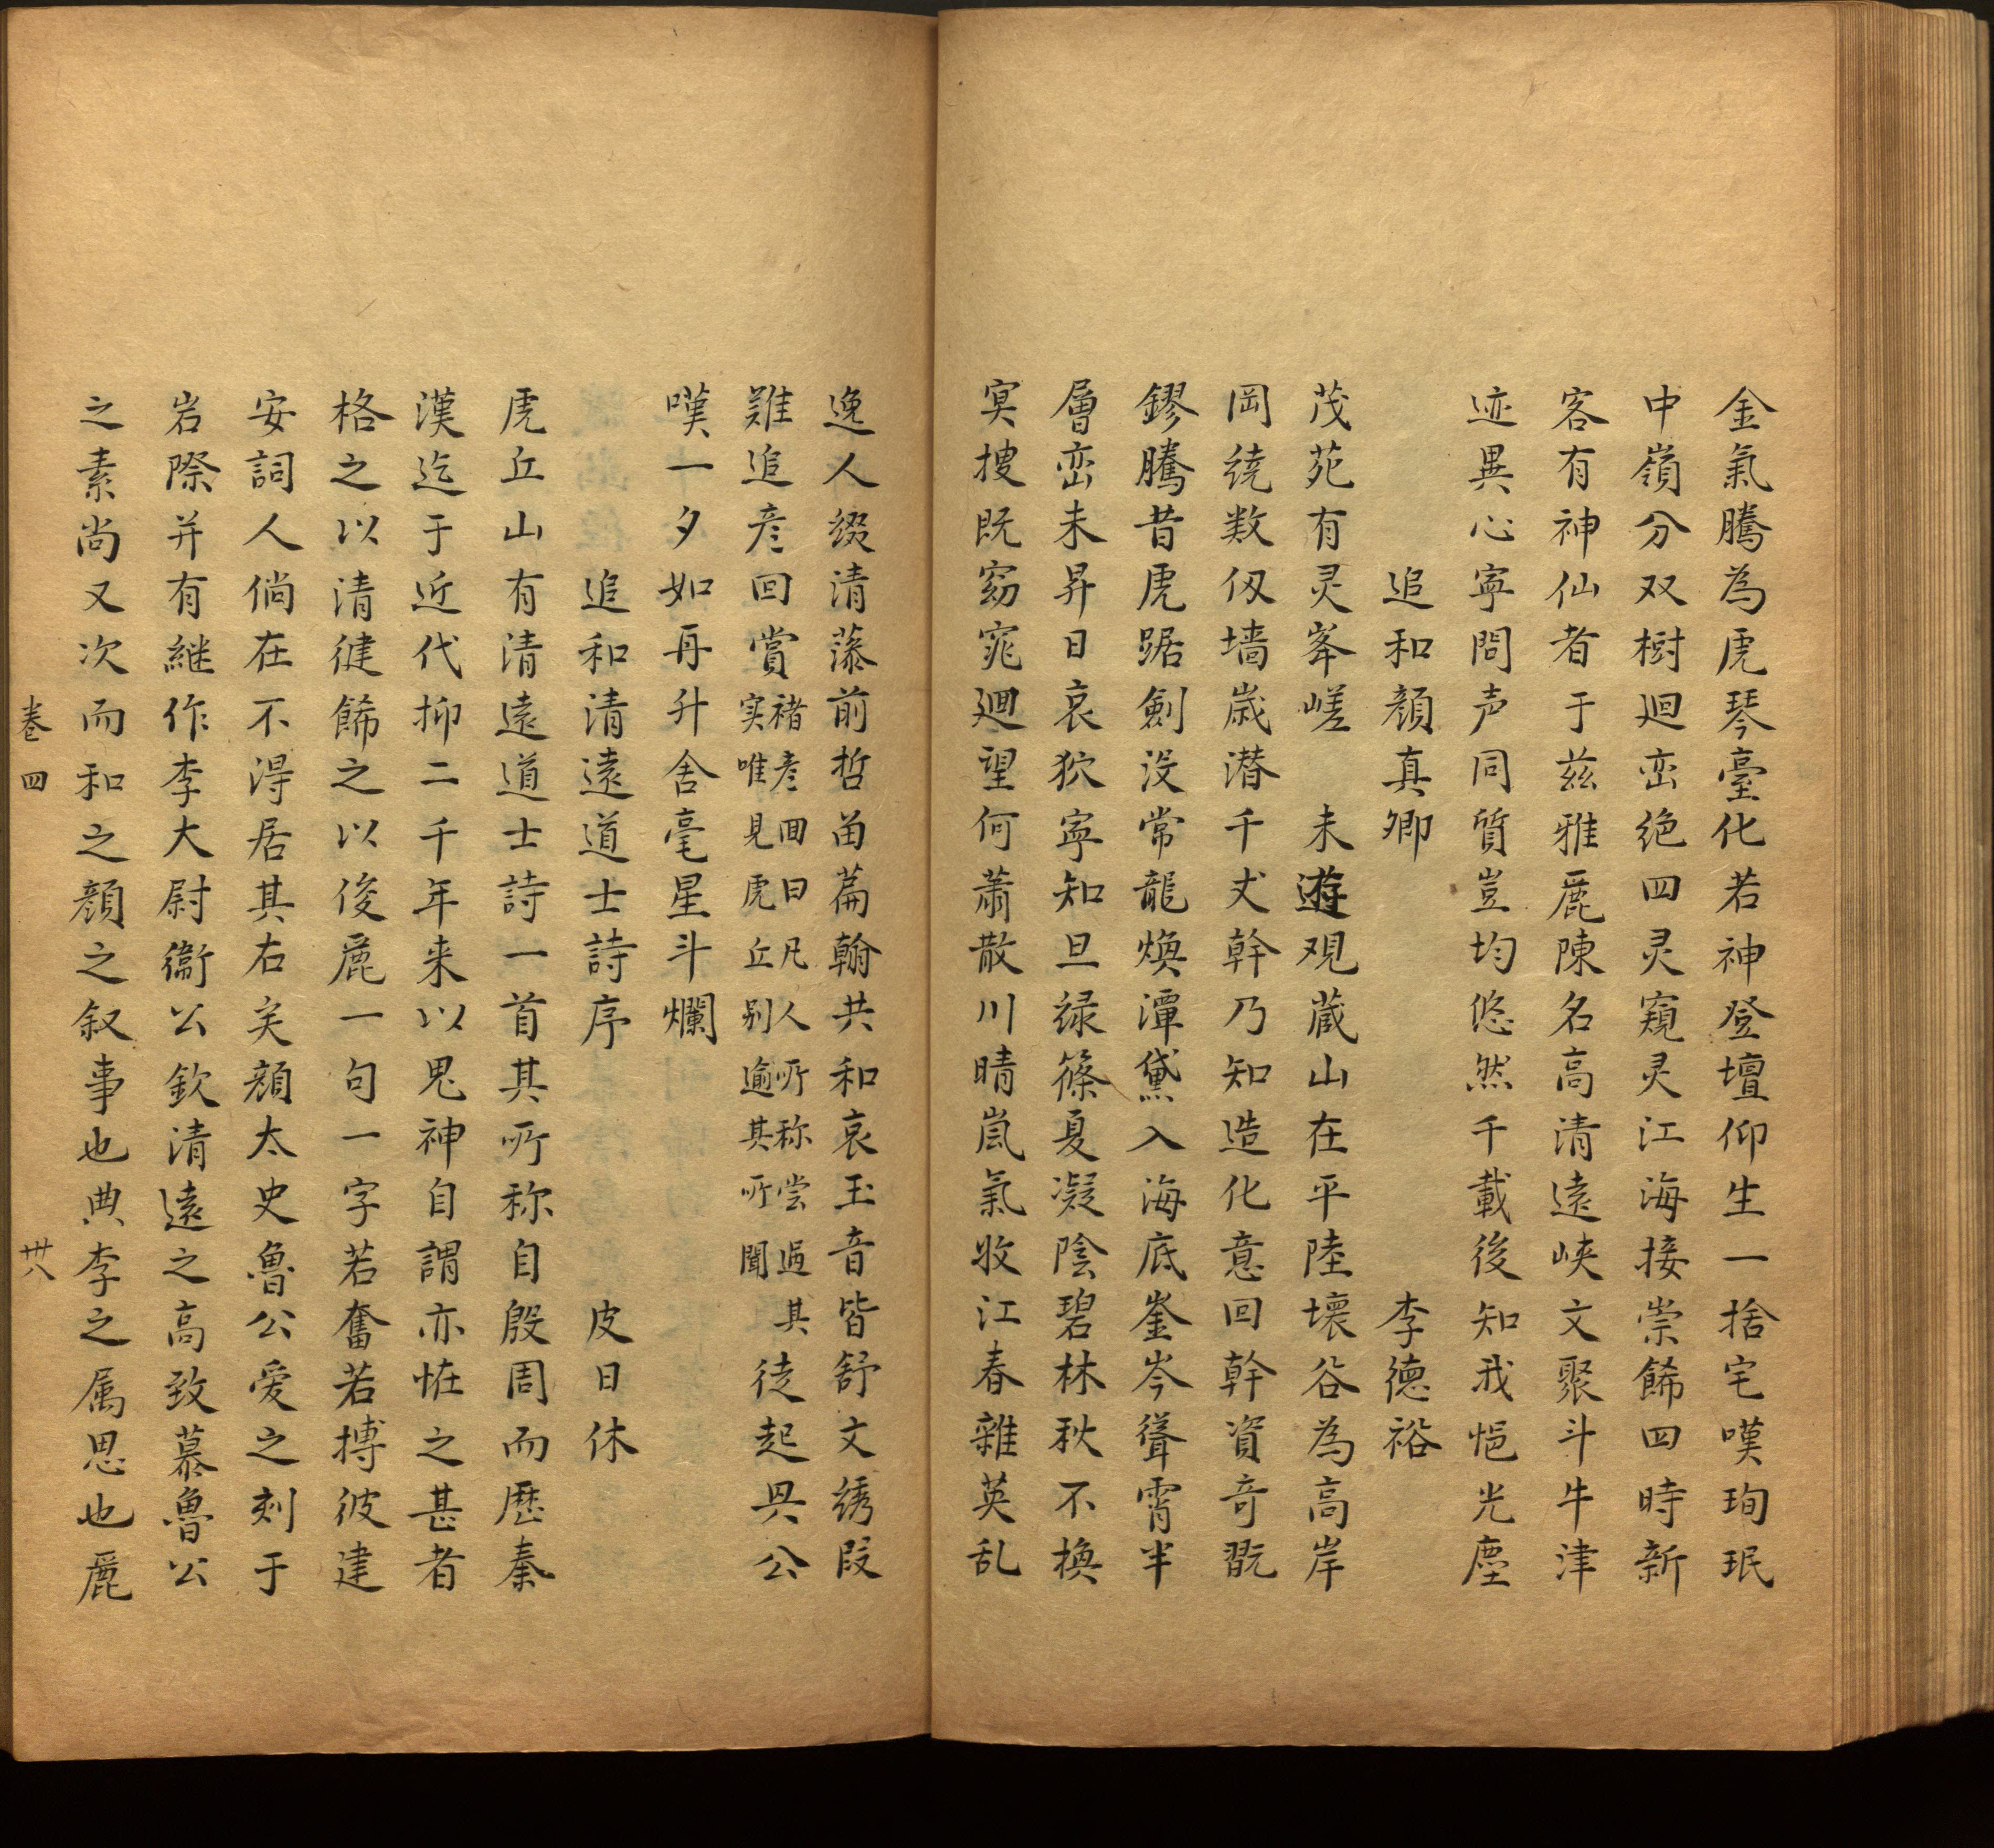 金氣騰為虎琴臺化若神登壇仰生一捨宅嘆珣珉
中嶺分双樹迴峦絶四灵窺灵江海接崇餙四時新
客有神仙者于茲雅麗陳名高清遠峽文聚斗牛津
迹異心寜問声同質豈均悠然千載後知我悒光塵
追和顔真卿　李德裕
茂苑有灵峯嵯　未遊观蔵山在平陸壞谷為高岸
岡繞数仭墻嵗潜千丈幹乃知造化意回幹資奇翫
鏐騰昔虎踞劍没常龍煥潭黛入海底崟岑聳霄半
層峦未昇日哀狖寜知旦緑篠夏凝陰碧林秋不换
冥搜既窈窕迴望何蕭散川晴嵐氣收江春雜英乱
逸人綴清藻前哲留篇翰共和哀玉音皆舒文綉段
難追彦回賞褚彦囬曰凡人所称尝過其
实唯見虎丘别逾其所聞徒起與公
嘆一夕如再升舍毫星斗爛
追和清遠道士詩序　皮日休
虎丘山有清遠道士詩一首其所称自殷周而歷秦
漢迄于近代抑二千年来以鬼神自謂亦恠之甚者
格之以清健餙之以俊麗一句一字若奮若搏彼建
安詞人倘在不淂居其右矣顔太史魯公愛之刻于
岩際并有継作李大尉衛公欽清遠之高致慕魯公
之素尚又次而和之顔之叙事也典李之属思也麗
卷四　卅八